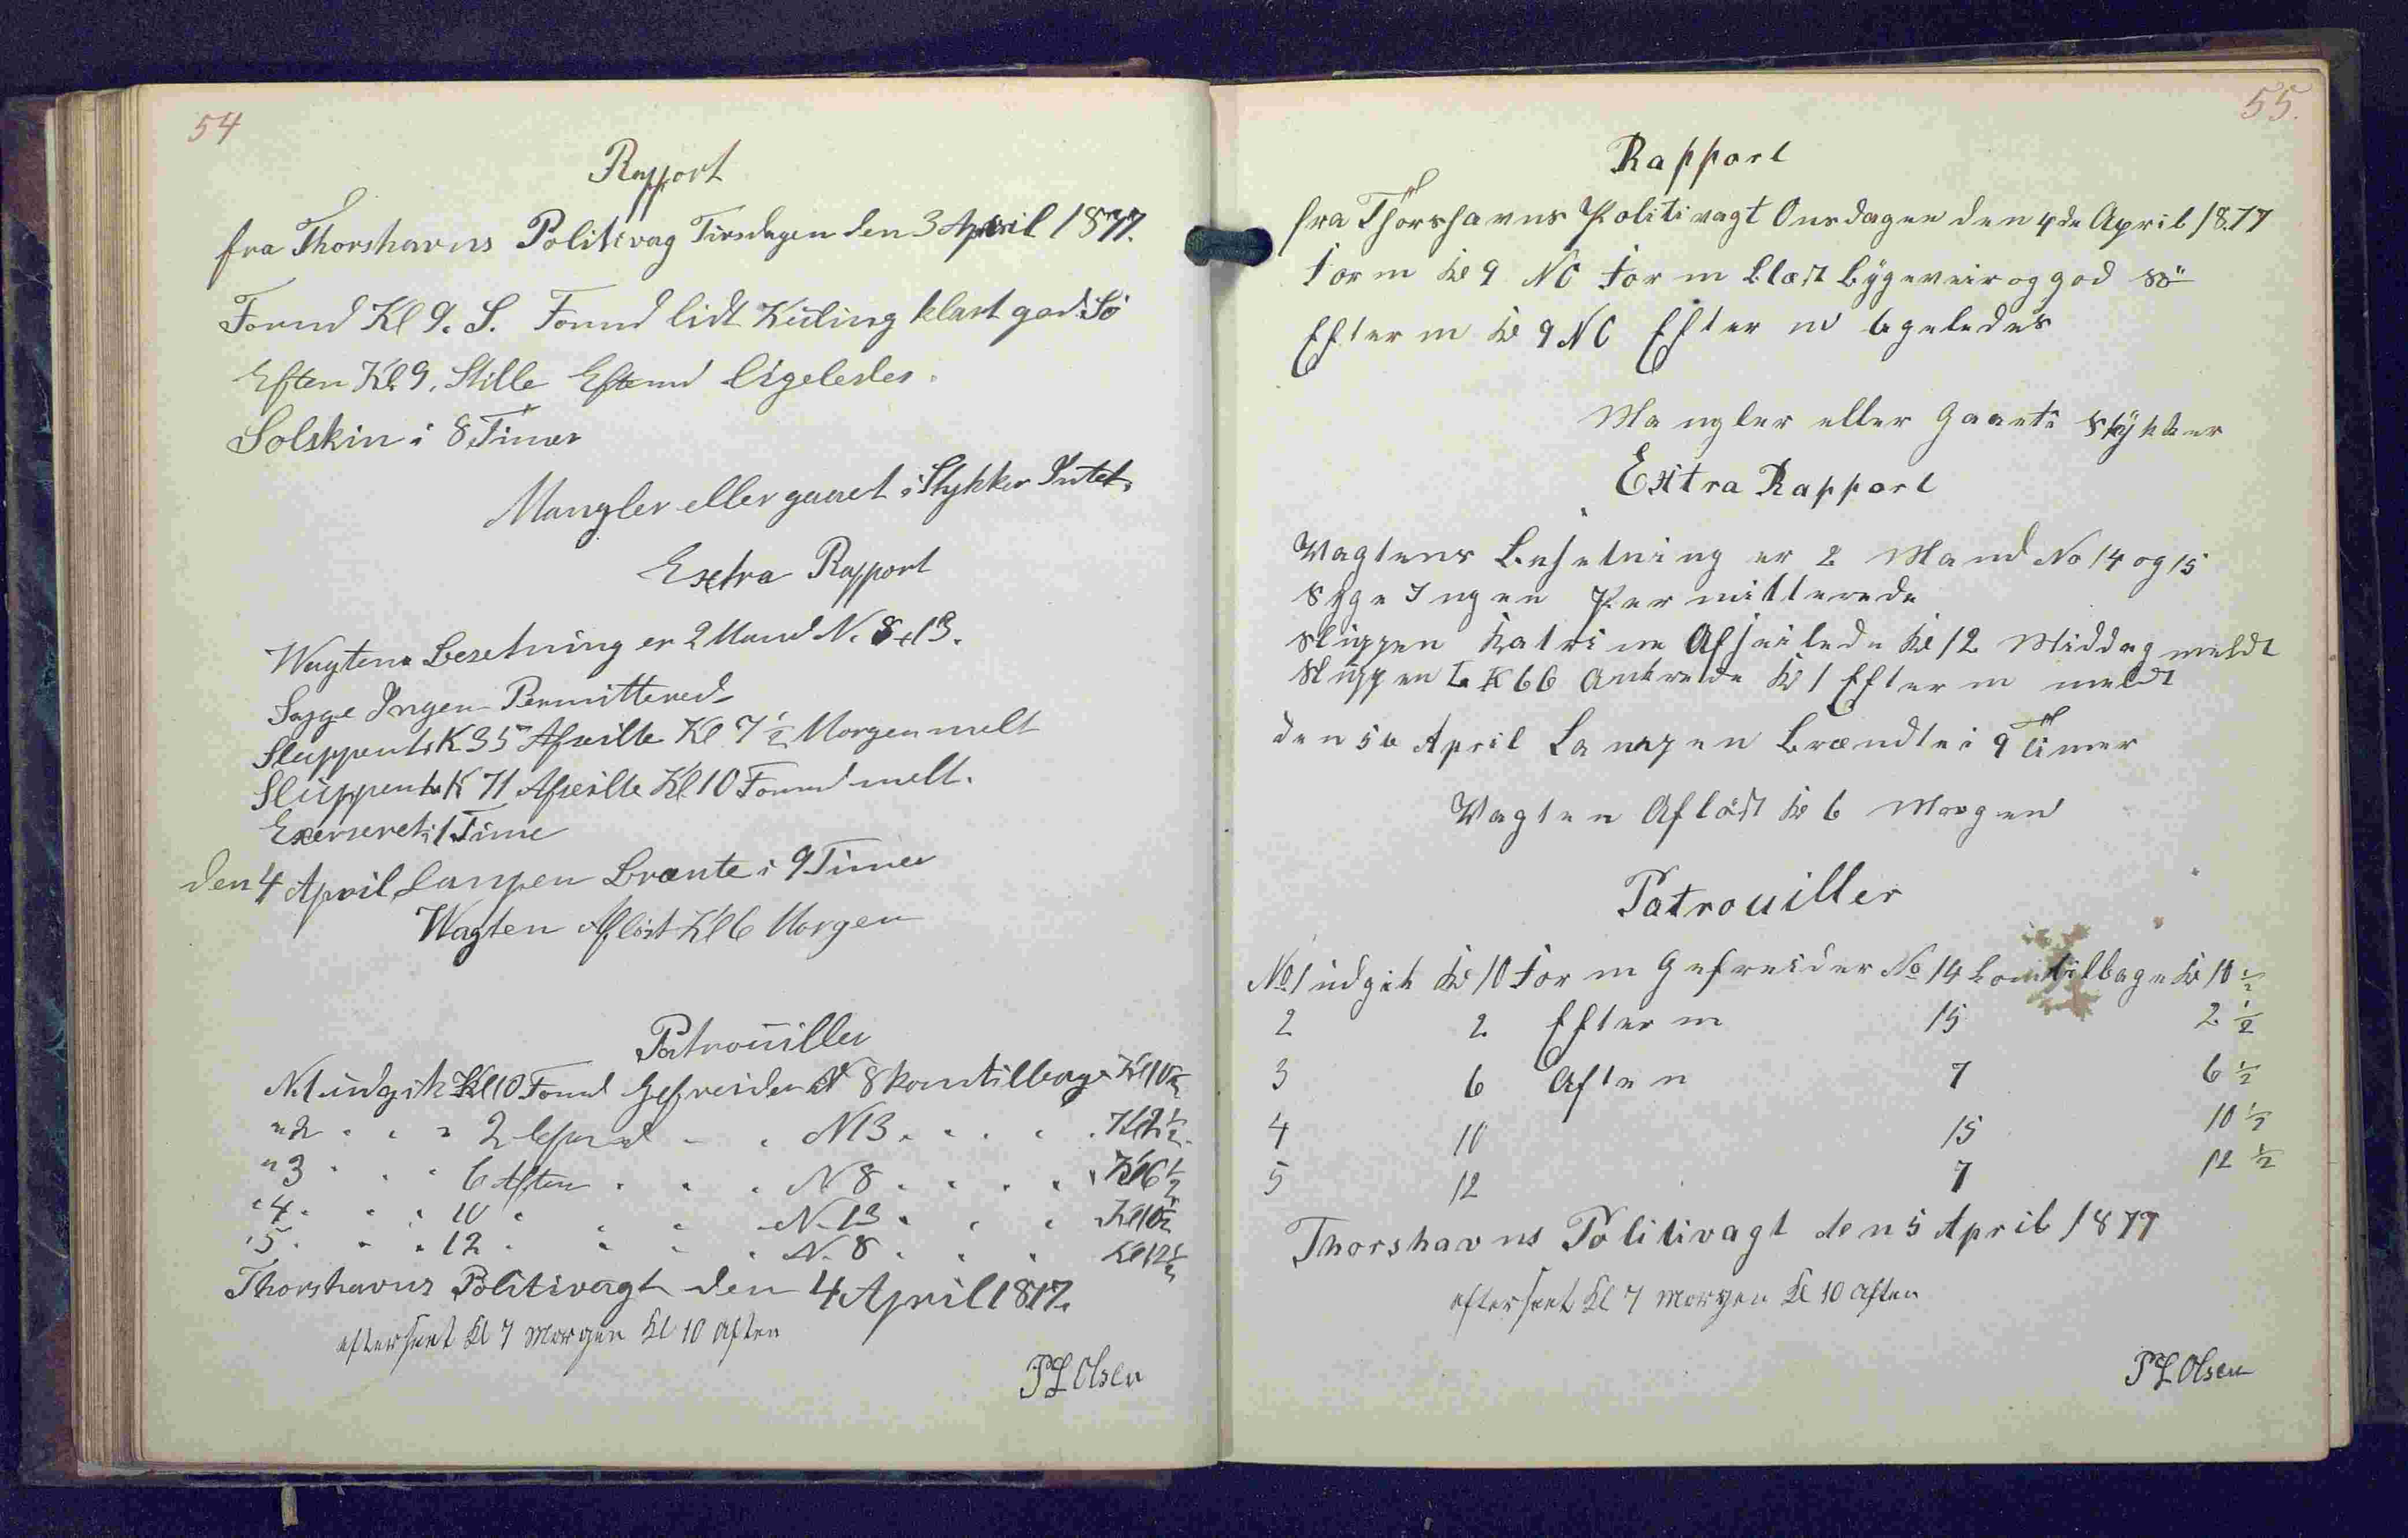 54
Rapport
fra Thorshavns Politivag Tirsdagen den 3 April 1877.
Formd Kl 9. S. Formd lidt Kuling klart god Sø
Eften Kl 9. Stille Eftmd ligeledes.
Solskin i 8 Timer
Mangler eller gaaet i Stykker Intet.
Extra Rapport
Wagtens Besetning er 2 Mand N. 8 & 13.
Syge Ingen Permittered
Sluppen K 35 Afseilte Kl 7 1/2 Morgen melt
Sluppen K 71 Afseilte Kl 10 Formd melt.
Exerseret i 1 Time
den 4 April Lampen Brænte i 9 Timer
Wagten Afløst Kl 6 Morgen
Patrouiller
N. 1 udgik Kl 10 Formd Gefreider N 8 kom tilbage Kl 10 1/2
" 2 " " " 2 " " N 13 " " " Kl 2 1/2
" 3 " " " 6 Aften " " " N 8 " " " " Kl 6 1/2
" 4 " " " 10 " " " N. 13 " " " Kl 10 1/2
" 5 " " " 12 " " " " N. 8 " " " Kl 12 1/2
Thorshavns Politivagt den 4 April 1877.
efterseet Kl 7 Morgen Kl 10 Aften
PL Olsen
55.
Rapport
fra Thorshavns Politivagt Onsdagen den 4de April 1877
Form Kl 9 NO Form blæst bygeveir og god Sö
Efterm Kl 9 NO Efterm ligeledes
Mangler eller Gaaet i Stykker
Extra Rapport
Vagtens Besetning er 2 Mand No 14 og 15
Syge Ingen Permitterede
Sluppen Katrine Afseilede Kl 12 Middag meldt
Sluppen K 66 Ankrede Kl 1 Efterm meldt
den 5te April Lampen Brændte i 9 Timer
Vagten Afløst Kl 6 Morgen
Patrouiller
No 1 udgik Kl 10 Form Gefreider No 14 kom tilbage Kl 10 1/2
2 2 Efterm 15 2 1/2
3 6 Aften 7 6 1/2
4 10 15 10 1/2
5 12 7 12 1/2
Thorshavns Politivagt den 5 April 1877
efterseet Kl 7 Morgen Kl 10 Aften
PL Olsen